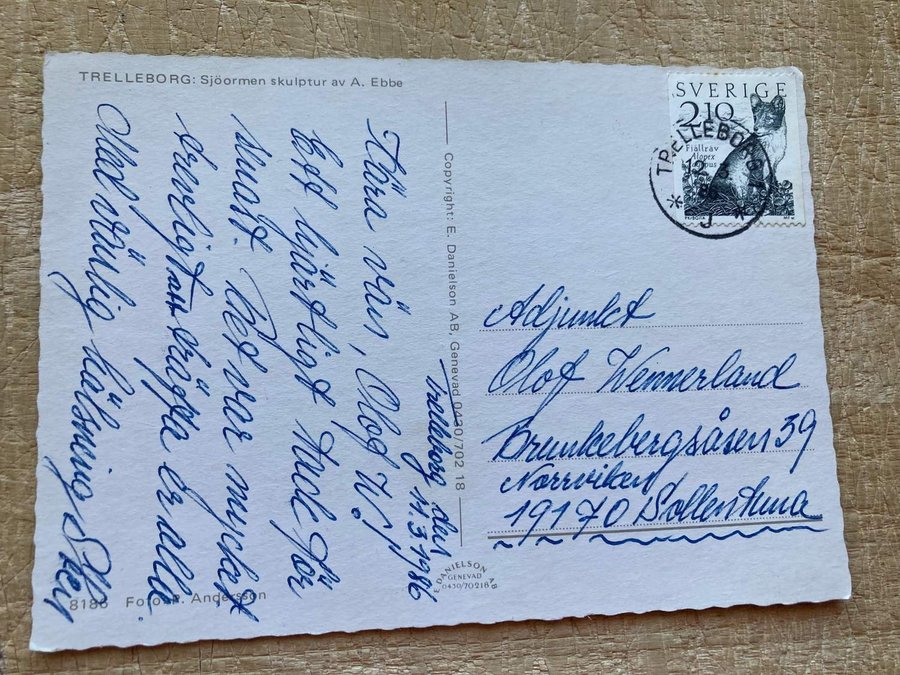 TRELLEBORG: Sjöormen skulptur av A. Ebbe
SVERIGE
210
Fjällräv
Alopex
TRELLEBORG
Trelleborg den
11.3.1986
Kära vän, Olof W.!
Ett hjärtligt tack för
senast. Det var mycket
trevligt att träffa er alla.
Med vänlig hälsning
Copyright: E. Danielson AB, Genevad 0430/702 18
Adjunkt
Olof Wennerland
Brunkebergsåsen 39
Norrvikan
19170 Sollentuna
E. DANIELSON AB
GENEVAD
0430/70218
8186 Foto: Andersson